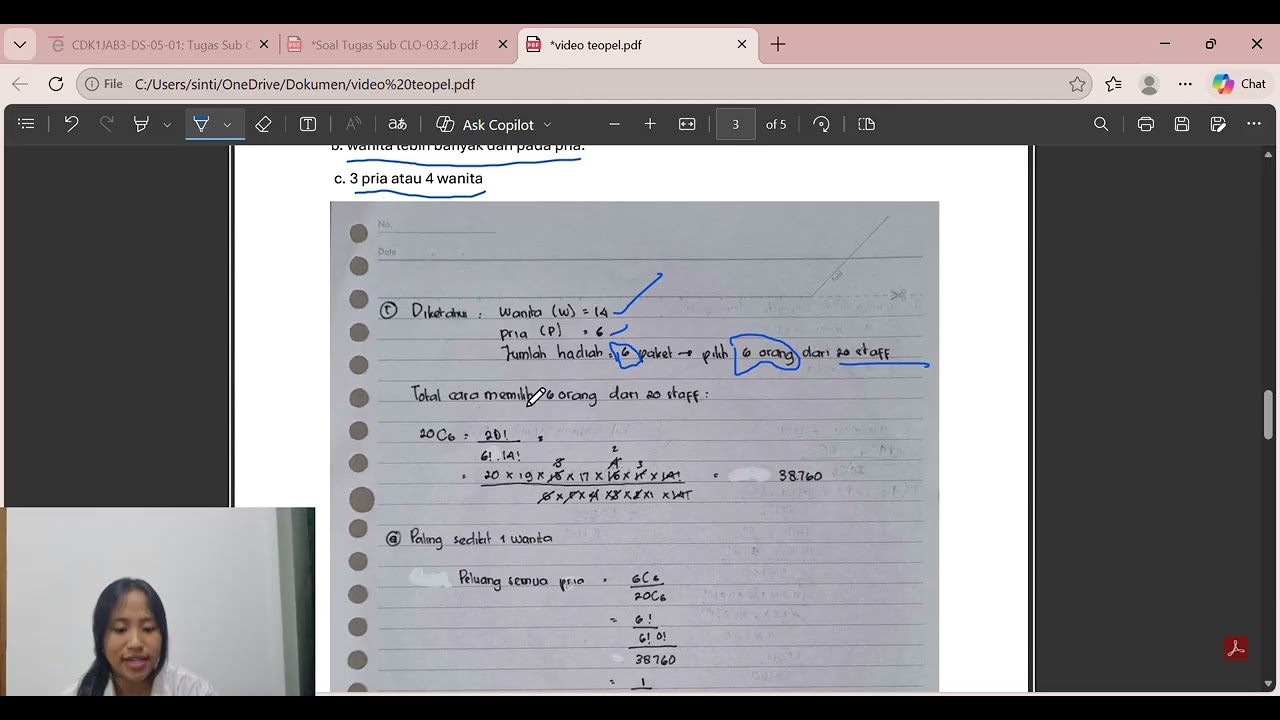 CDK1JAB3-DS-05-01: Tugas Sub C
*Soal Tugas Sub CLO-03.2.1.pdf
*video teopel.pdf
File C:/Users/sinti/OneDrive/Dokumen/video%20teopel.pdf
Chat
Ask Copilot
3 of 5
b. wanita lebih banyak dari pada pria.
c. 3 pria atau 4 wanita
No.
Date
fold
① Diketahui : Wanita (W) = 14
pria (P) = 6
Jumlah hadiah = 6 paket → pilih 6 orang dari 20 staff
Total cara memilih 6 orang dari 20 staff :
20C6 = 20!
6! . 14!
= 20 × 19 × 18 × 17 × 16 × 15 × 14! = 38.760
6 × 5 × 4 × 3 × 2 × 1 × 14!
ⓐ Paling sedikit 1 wanita
Peluang semua pria = 6C6
20C6
= 6!
6! 0!
38760
= 1